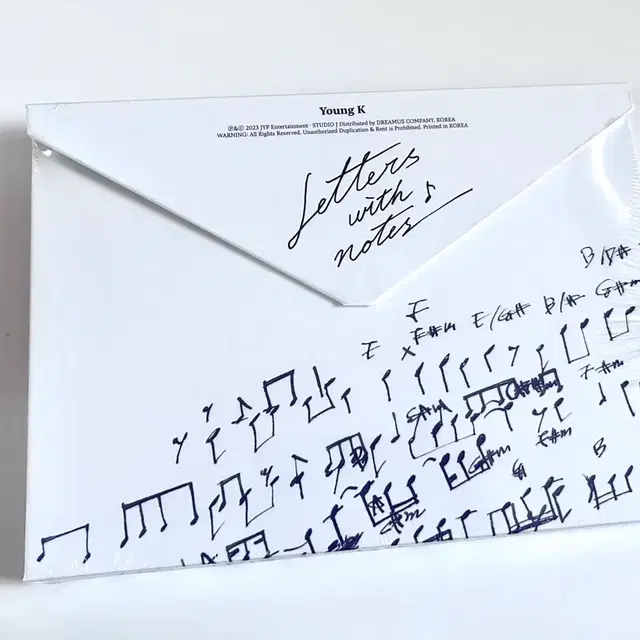 Young K
℗&© 2023 JYP Entertainment · STUDIO J Distributed by DREAMUS COMPANY, KOREA
WARNING: All Rights Reserved. Unauthorized Duplication & Rent is Prohibited. Printed in KOREA
Letters
with
notes
B/D#
E F#m E/G# B/# G#m
F#m
G#m
G#m F#m B
C#m